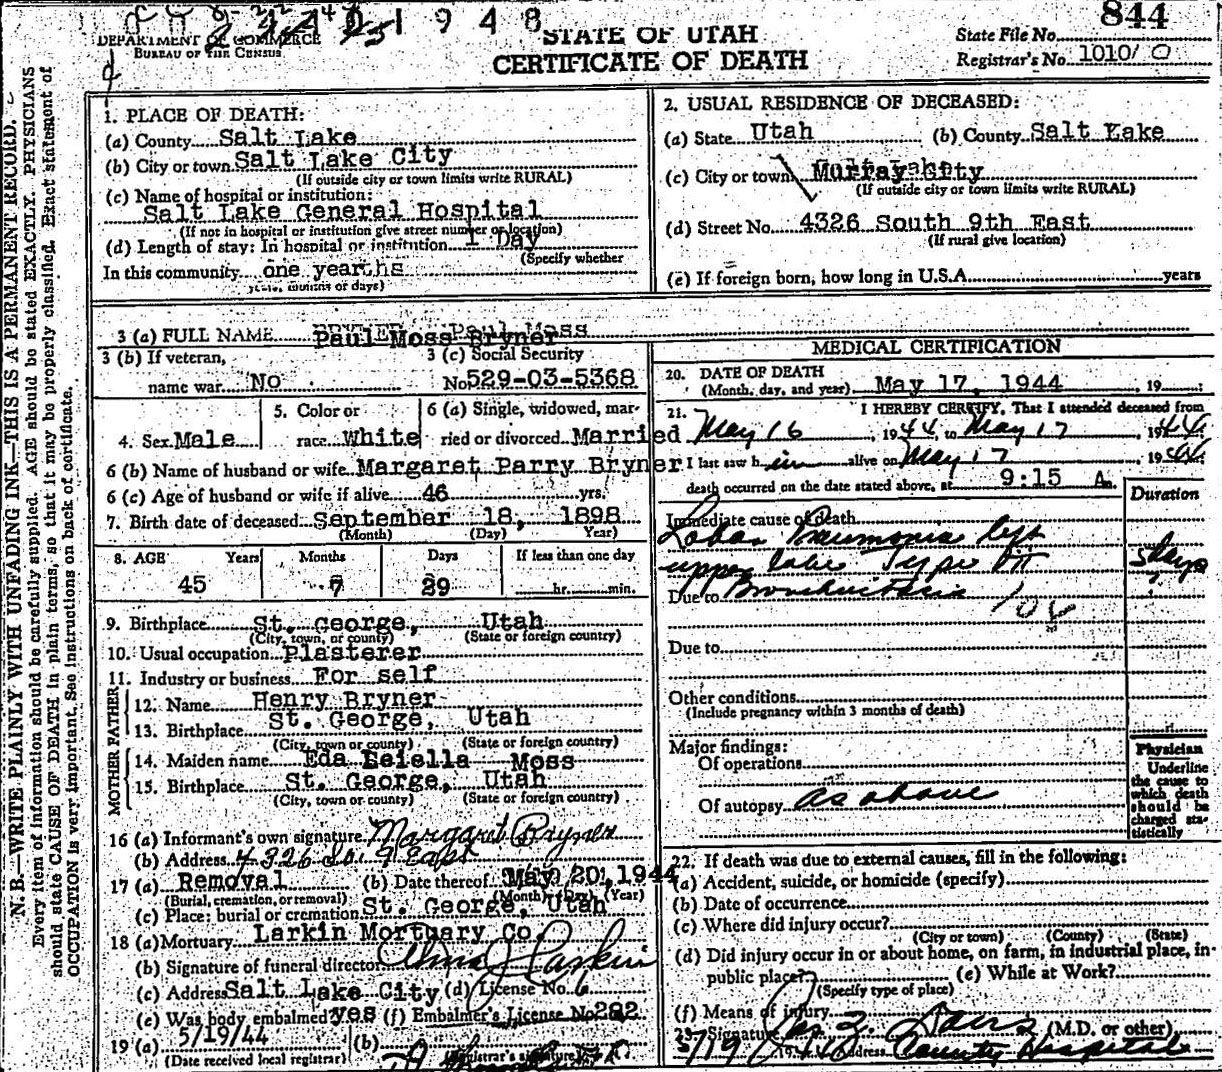 1948
844
DEPARTMENT OF COMMERCE
BUREAU OF THE CENSUS
STATE OF UTAH
CERTIFICATE OF DEATH
State File No.
Registrar's No. 1010/0
N. B.—WRITE PLAINLY WITH UNFADING INK—THIS IS A PERMANENT RECORD.
Every item of information should be carefully supplied. AGE should be stated EXACTLY. PHYSICIANS
should state CAUSE OF DEATH in plain terms, so that it may be properly classified. Exact statement of
OCCUPATION is very important. See instructions on back of certificate.
1. PLACE OF DEATH:
(a) County Salt Lake
(b) City or town Salt Lake City
(If outside city or town limits write RURAL)
(c) Name of hospital or institution:
Salt Lake General Hospital
(If not in hospital or institution give street number or location)
(d) Length of stay: In hospital or institution 1 Day
(Specify whether
In this community one year
years, months or days)
2. USUAL RESIDENCE OF DECEASED:
(a) State Utah (b) County Salt Lake
(c) City or town Murray City
(If outside city or town limits write RURAL)
(d) Street No. 4326 South 9th East
(If rural give location)
(e) If foreign born, how long in U.S.A. years
3 (a) FULL NAME Paul Moss Bryner
3 (b) If veteran, 3 (c) Social Security
name war No No. 529-03-5368
4. Sex Male 5. Color or race White 6 (a) Single, widowed, married or divorced Married
6 (b) Name of husband or wife Margaret Parry Bryner
6 (c) Age of husband or wife if alive 46 yrs.
7. Birth date of deceased September 18, 1898
(Month) (Day) Year)
8. AGE Years Months Days If less than one day
45 7 29 hr. min.
9. Birthplace St. George, Utah
(City, town, or county) (State or foreign country)
10. Usual occupation Plasterer
11. Industry or business For self
FATHER
12. Name Henry Bryner
13. Birthplace St. George, Utah
(City, town or county) (State or foreign country)
MOTHER
14. Maiden name Eda Moss
15. Birthplace St. George, Utah
(City, town or county) (State or foreign country)
16 (a) Informant's own signature Margaret Bryner
(b) Address 4326 So. 9 East
17 (a) Removal (b) Date thereof May 20, 1944
(Burial, cremation, or removal) (Month) (Day) (Year)
(c) Place: burial or cremation St. George, Utah
18 (a) Mortuary Larkin Mortuary Co.
(b) Signature of funeral director Alma J Larkin
(c) Address Salt Lake City (d) License No. 6
(e) Was body embalmed yes (f) Embalmer's License No. 282
19 (a) 5/19/44 (b)
(Date received local registrar) (Registrar's signature)
MEDICAL CERTIFICATION
20. DATE OF DEATH
(Month, day, and year) May 17, 1944, 19
21. I HEREBY CERTIFY, That I attended deceased from
May 16, 1944, to May 17, 1944
I last saw him alive on May 17 1944
death occurred on the date stated above, at 9:15 A m.
Duration
Immediate cause of death
Lobar Pneumonia left
upper lobe Type 5 days
Due to
Due to
Other conditions
(Include pregnancy within 3 months of death)
Major findings:
Of operations
Of autopsy as above
Physician
Underline
the cause to
which death
should be
charged sta-
tistically
22. If death was due to external causes, fill in the following:
(a) Accident, suicide, or homicide (specify)
(b) Date of occurrence
(c) Where did injury occur?
(City or town) (County) (State)
(d) Did injury occur in or about home, on farm, in industrial place, in
public place? (e) While at Work?
(Specify type of place)
(f) Means of injury
23. Signature (M.D. or other)
5/19 Address County Hospital